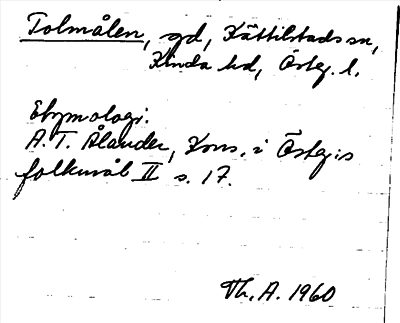 Tolmålen, gd, Kättilstads sn,
Kinda hd, Östg. l.
Etymologi.
A. T. Ålander, Kons. i Östg:s
folkmål II s. 17.
Th. A. 1960